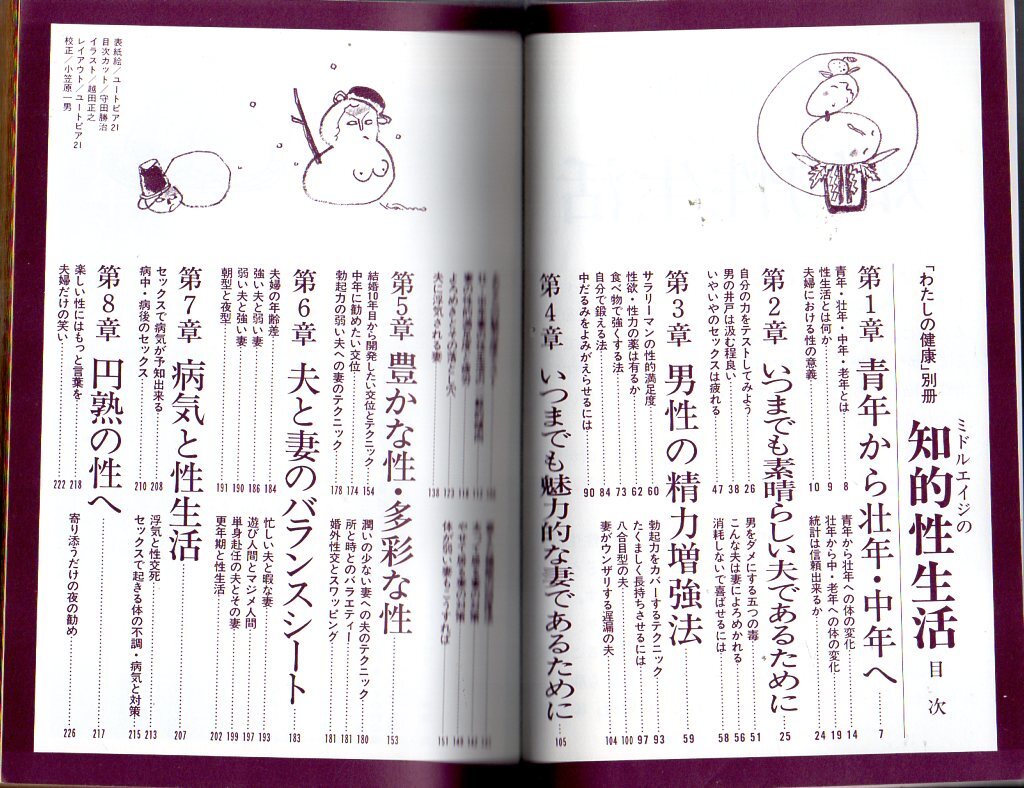 「わたしの健康」別冊
ミドルエイジの
知的性生活 目次
第1章 青年から壮年・中年へ……7
青年・壮年・中年・老年とは……8
性生活とは何か……9
夫婦における性の意義……10
青年から壮年への体の変化……14
壮年から中・老年への体の変化……19
統計は信頼出来るか……24
第2章 いつまでも素晴らしい夫であるために……25
自分の力をテストしてみよう……26
男の井戸は汲む程良い……38
いやいやのセックスは疲れる……47
男をダメにする五つの毒……51
こんな夫は妻によろめかれる……56
消耗しないで喜ばせるには……58
第3章 男性の精力増強法……59
サラリーマンの性的満足度……60
性欲・性力の薬は有るか……62
食べ物で強くする法……73
自分で鍛える法……84
中だるみをよみがえらせるには……90
勃起力をカバーするテクニック……93
たくましく長持ちさせるには……97
八合目型の夫……100
妻がウンザリする遅漏の夫……104
第4章 いつまでも魅力的な妻であるために……105
夫に浮気される妻……138
体が弱い妻もこうすれば……151
第5章 豊かな性・多彩な性……153
結婚10年目から開発したい交位とテクニック……154
中年に勧めたい交位……174
勃起力の弱い夫への妻のテクニック……178
潤いの少ない妻への夫のテクニック……180
所と時とのバラエティー……181
婚外性交とスワッピング……181
第6章 夫と妻のバランスシート……183
夫婦の年齢差……184
強い夫と弱い妻……186
弱い夫と強い妻……190
朝型と夜型……191
忙しい夫と暇な妻……193
遊び人間とマジメ人間……197
単身赴任の夫とその妻……199
更年期と性生活……202
第7章 病気と性生活……207
セックスで病気が予知出来る……208
病中・病後のセックス……210
浮気と性交死……213
セックスで起きる体の不調・病気と対策……215
第8章 円熟の性へ……217
楽しい性にはもっと言葉を……218
夫婦だけの笑い……222
寄り添うだけの夜の勧め……226
表紙絵/ユートピア21
目次カット/守田勝治
イラスト/越田正之
レイアウト/ユートピア21
校正/小笠原一男